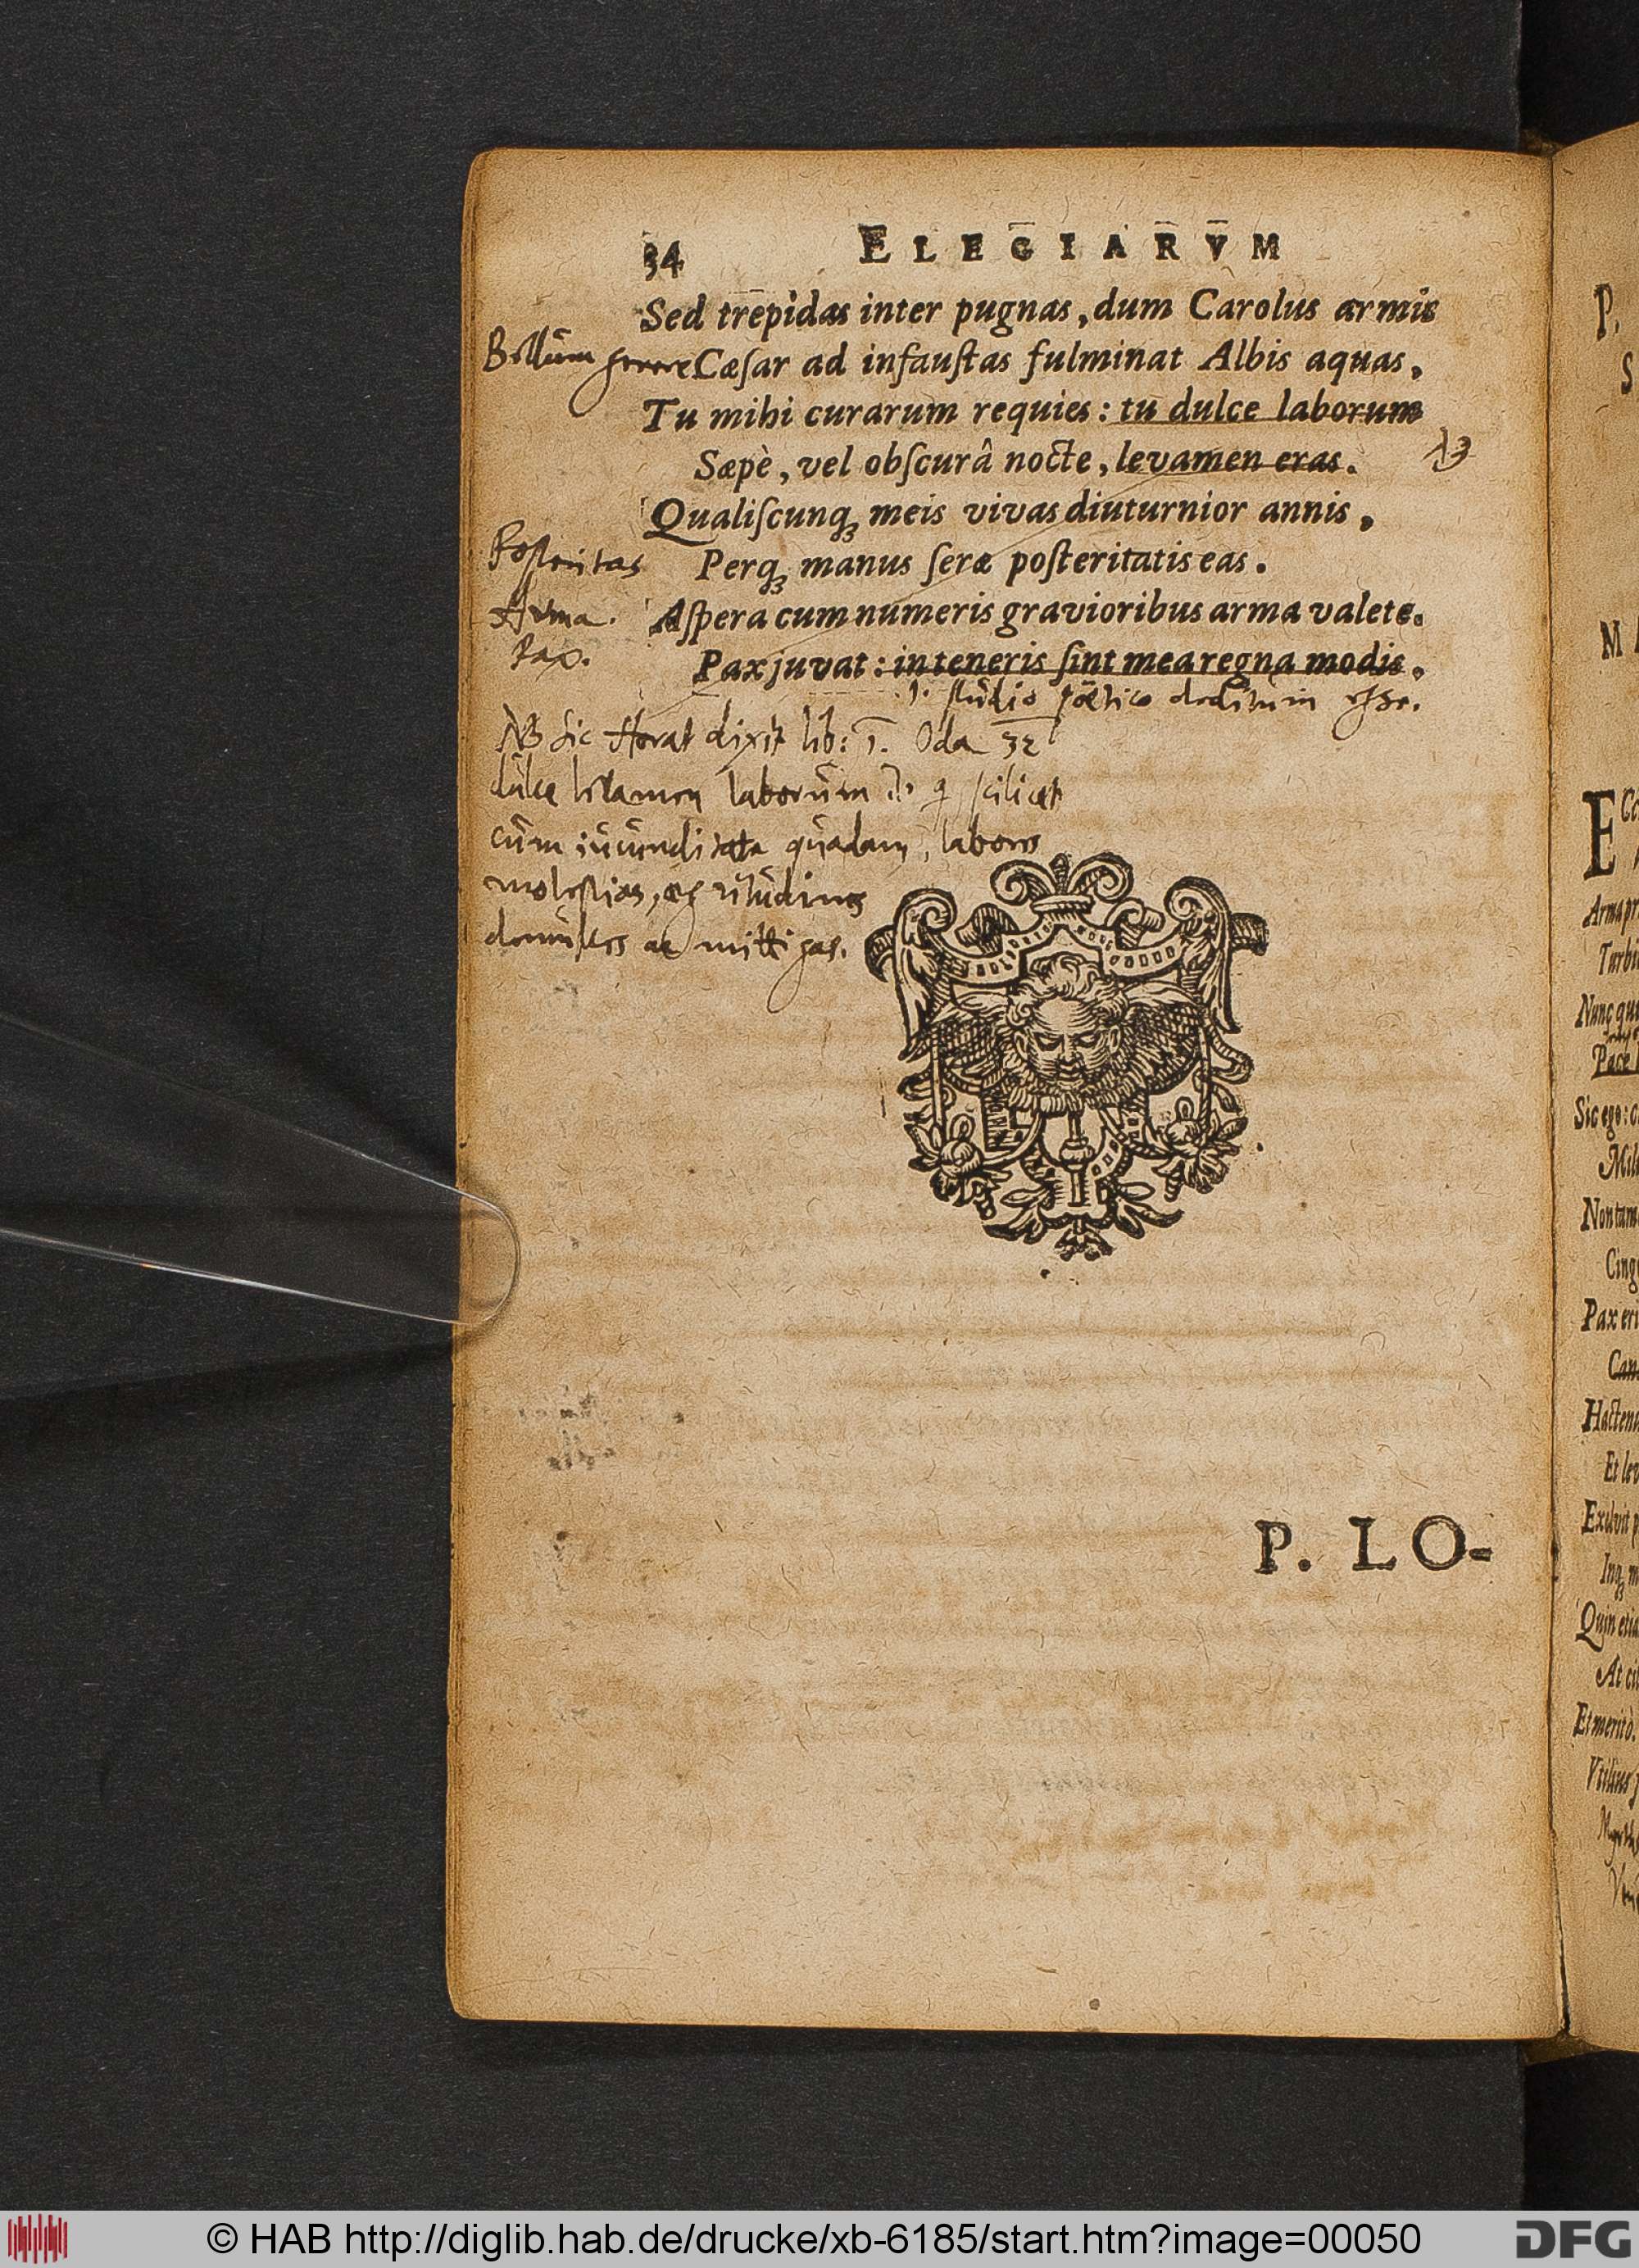 34 ELEGIARVM
Sed trepidas inter pugnas, dum Carolus armis
Bellum gerere
Cæſar ad infauſtas fulminat Albis aquas,
Tu mihi curarum requies: tu dulce laborum
Sæpè, vel obſcurâ nocte, levamen eras.
NB
Qualiſcunq; meis vivas diuturnior annis,
Posteritas
Perq; manus ſeræ poſteritatis eas.
Arma.
Aſpera cum numeris gravioribus arma valete.
Pax.
Pax juvat: in teneris ſint mea regna modis.
.i. studio poëtico deditum esse.
NB Sic Horat dixit lib: 1. Oda 32
dulce levamen laborum scilicet
cum iucunditate quadam, labores
molestias, aegritudines
demulces ac mittigas.
P. LO-
P.
S
M
E
Arma
Nunc
Pace
Sic ego:
Non tam
Cing
Pax eri
Hacten
Et lev
Quin etia
At ci
Et meritò.
© HAB http://diglib.hab.de/drucke/xb-6185/start.htm?image=00050
DFG